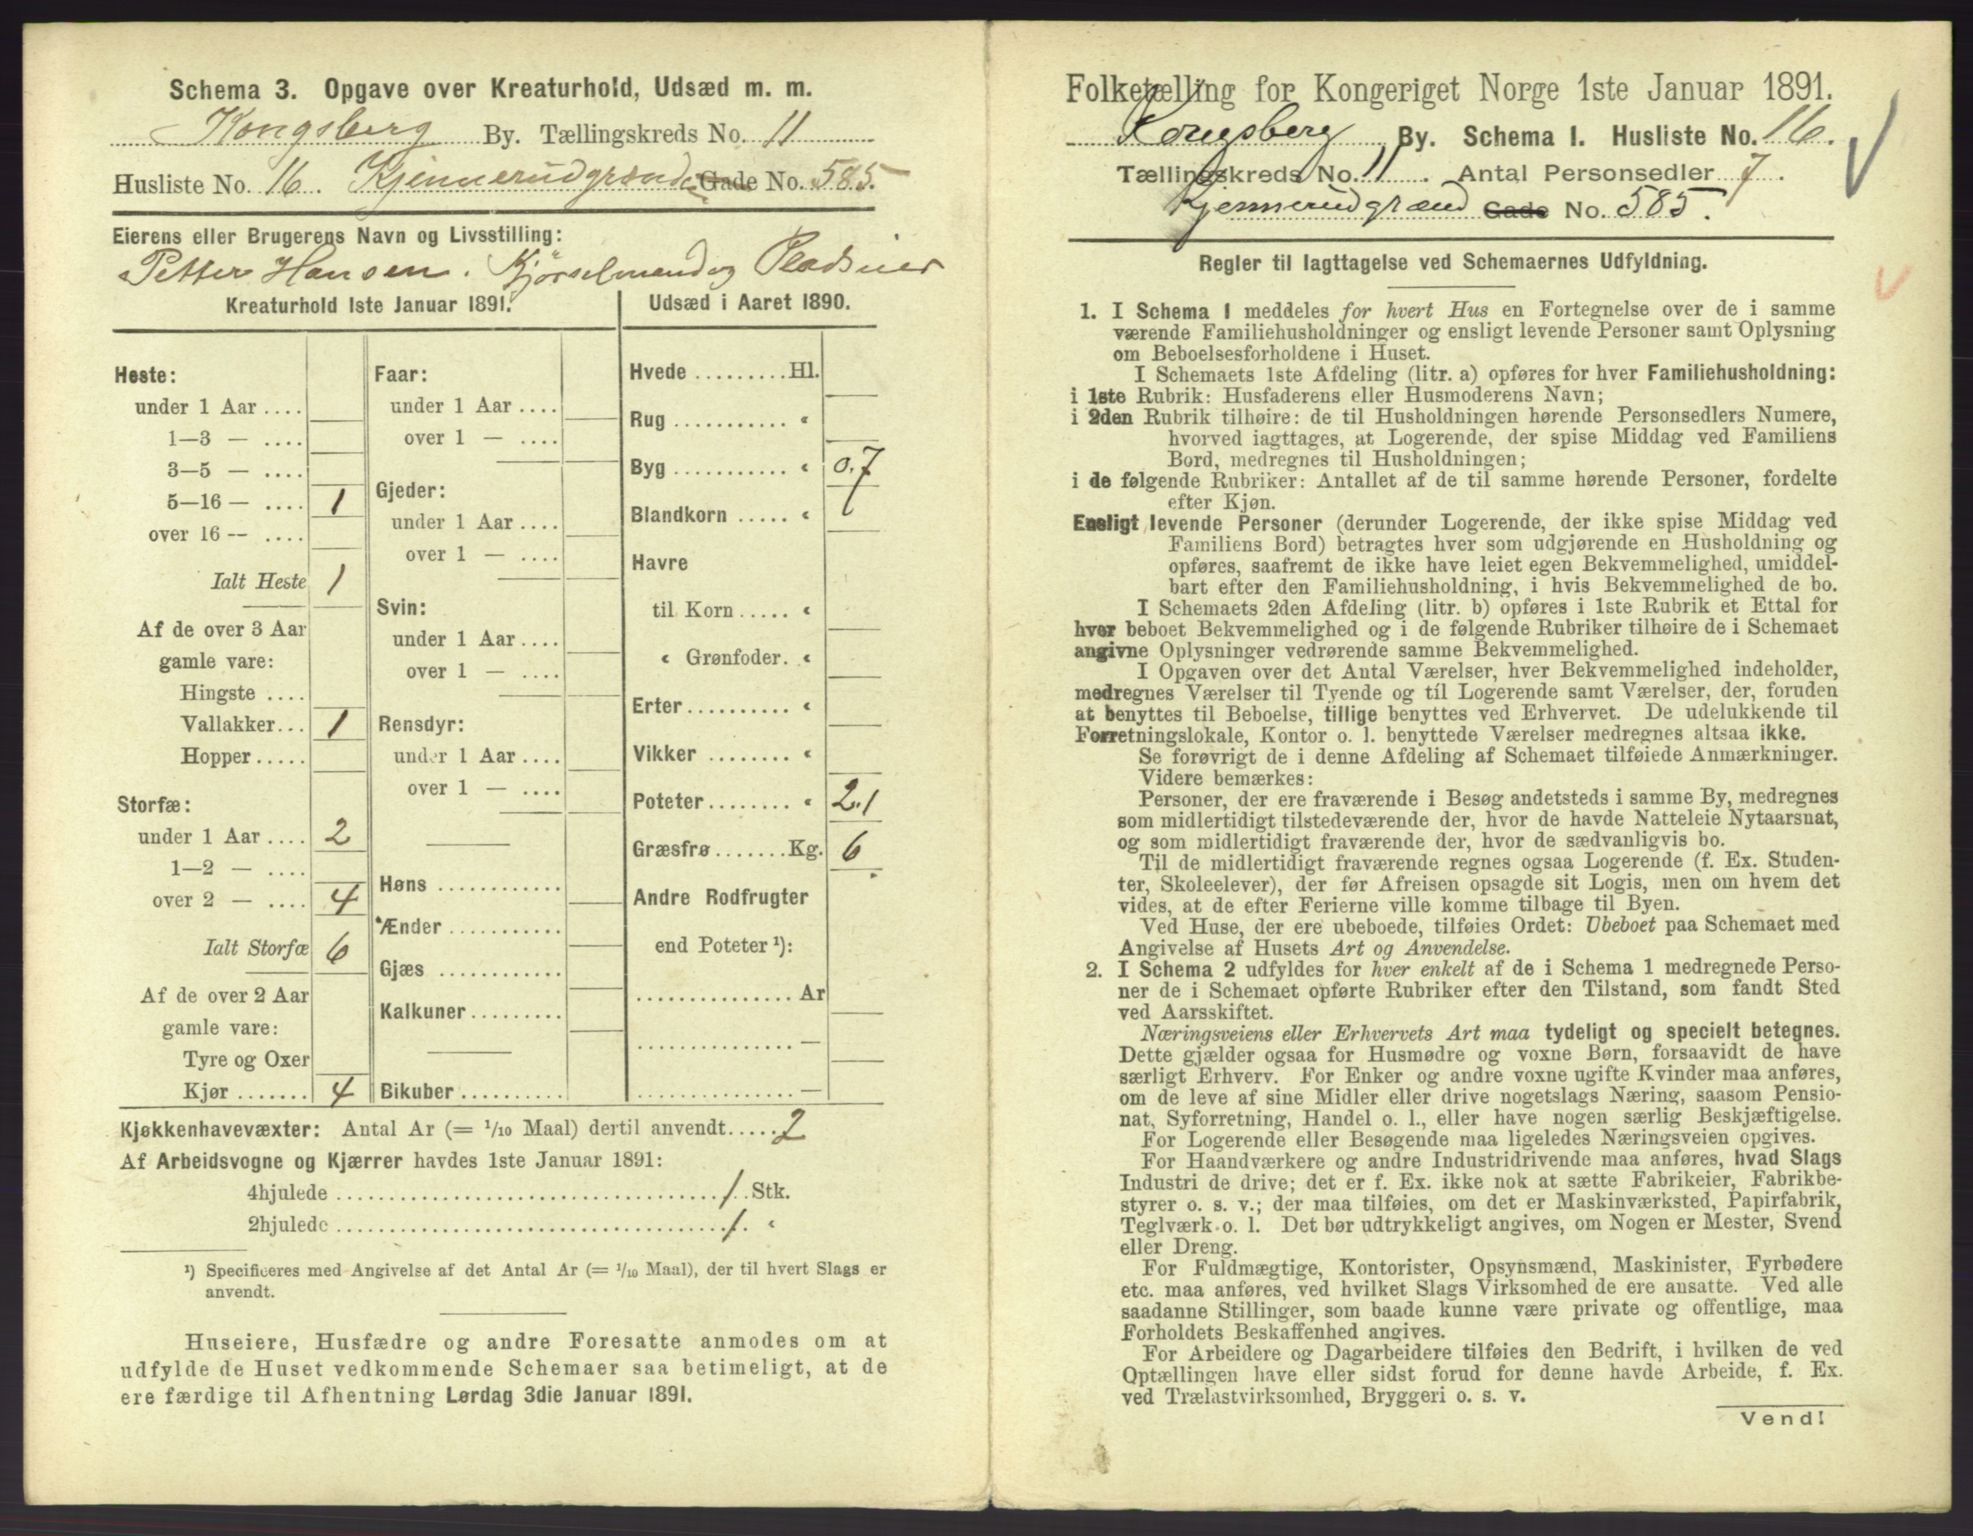 Schema 3. Opgave over Kreaturhold, Udsæd m. m.
Kongsberg By. Tællingskreds No. 11
Husliste No. 16. Kjennerudgrænd Gade No. 585.
Eierens eller Brugerens Navn og Livsstilling:
Petter Hansen. Kjørselmand og Pladseier
Kreaturhold 1ste Januar 1891.
Heste:
under 1 Aar ....
1—3 — ....
3—5 — ....
5—16 — .... 1
over 16 — ....
Ialt Heste 1
Af de over 3 Aar
gamle vare:
Hingste ....
Vallakker... 1
Hopper.....
Storfæ:
under 1 Aar .... 2
1—2 — ....
over 2 — .... 4
Ialt Storfæ 6
Af de over 2 Aar
gamle vare:
Tyre og Oxer
Kjør ....... 4
Faar:
under 1 Aar ....
over 1 — ....
Gjeder:
under 1 Aar ....
over 1 — ....
Svin:
under 1 Aar ....
over 1 — ....
Rensdyr:
under 1 Aar ....
over 1 — ....
Høns ............
Ænder ...........
Gjæs ............
Kalkuner.........
Bikuber ..........
Udsæd i Aaret 1890.
Hvede .........Hl.
Rug ........... «
Byg ........... « 0.7
Blandkorn ..... «
Havre
til Korn ..... «
« Grønfoder. «
Erter.......... «
Vikker ........ «
Poteter........ « 2.1
Græsfrø.......Kg. 6
Andre Rodfrugter
end Poteter ¹):
................ Ar
................ —
................ —
Kjøkkenhavevæxter: Antal Ar (= 1/10 Maal) dertil anvendt..... 2
Af Arbeidsvogne og Kjærrer havdes 1ste Januar 1891:
4hjulede ........................................ 1 Stk.
2hjulede ........................................ 1. «
¹) Specificeres med Angivelse af det Antal Ar (= 1/10 Maal), der til hvert Slags er
anvendt.
Huseiere, Husfædre og andre Foresatte anmodes om at
udfylde de Huset vedkommende Schemaer saa betimeligt, at de
ere færdige til Afhentning Lørdag 3die Januar 1891.
Folketælling for Kongeriget Norge 1ste Januar 1891.
Kongsberg By. Schema 1. Husliste No. 16.
Tællingskreds No. 11. Antal Personsedler 7.
Kjennerudgrænd Gade No. 585.
Regler til Iagttagelse ved Schemaernes Udfyldning.
1. I Schema 1 meddeles for hvert Hus en Fortegnelse over de i samme
værende Familiehusholdninger og ensligt levende Personer samt Oplysning
om Beboelsesforholdene i Huset.
I Schemaets 1ste Afdeling (litr. a) opføres for hver Familiehusholdning:
i 1ste Rubrik: Husfaderens eller Husmoderens Navn;
i 2den Rubrik tilhøire: de til Husholdningen hørende Personsedlers Numere,
hvorved iagttages, at Logerende, der spise Middag ved Familiens
Bord, medregnes til Husholdningen;
i de følgende Rubriker: Antallet af de til samme hørende Personer, fordelte
efter Kjøn.
Ensligt levende Personer (derunder Logerende, der ikke spise Middag ved
Familiens Bord) betragtes hver som udgjørende en Husholdning og
opføres, saafremt de ikke have leiet egen Bekvemmelighed, umiddel-
bart efter den Familiehusholdning, i hvis Bekvemmelighed de bo.
I Schemaets 2den Afdeling (litr. b) opføres i 1ste Rubrik et Ettal for
hver beboet Bekvemmelighed og i de følgende Rubriker tilhøire de i Schemaet
angivne Oplysninger vedrørende samme Bekvemmelighed.
I Opgaven over det Antal Værelser, hver Bekvemmelighed indeholder,
medregnes Værelser til Tyende og til Logerende samt Værelser, der, foruden
at benyttes til Beboelse, tillige benyttes ved Erhvervet. De udelukkende til
Forretningslokale, Kontor o. l. benyttede Værelser medregnes altsaa ikke.
Se forøvrigt de i denne Afdeling af Schemaet tilføiede Anmærkninger.
Videre bemærkes:
Personer, der ere fraværende i Besøg andetsteds i samme By, medregnes
som midlertidigt tilstedeværende der, hvor de havde Natteleie Nytaarsnat,
og som midlertidigt fraværende der, hvor de sædvanligvis bo.
Til de midlertidigt fraværende regnes ogsaa Logerende (f. Ex. Studen-
ter, Skoleelever), der før Afreisen opsagde sit Logis, men om hvem det
vides, at de efter Ferierne ville komme tilbage til Byen.
Ved Huse, der ere ubeboede, tilføies Ordet: Ubeboet paa Schemaet med
Angivelse af Husets Art og Anvendelse.
2. I Schema 2 udfyldes for hver enkelt af de i Schema 1 medregnede Perso-
ner de i Schemaet opførte Rubriker efter den Tilstand, som fandt Sted
ved Aarsskiftet.
Næringsveiens eller Erhvervets Art maa tydeligt og specielt betegnes.
Dette gjælder ogsaa for Husmødre og voxne Børn, forsaavidt de have
særligt Erhverv. For Enker og andre voxne ugifte Kvinder maa anføres,
om de leve af sine Midler eller drive nogetslags Næring, saasom Pensio-
nat, Syforretning, Handel o. l., eller have nogen særlig Beskjæftigelse.
For Logerende eller Besøgende maa ligeledes Næringsveien opgives.
For Haandværkere og andre Industridrivende maa anføres, hvad Slags
Industri de drive; det er f. Ex. ikke nok at sætte Fabrikeier, Fabrikbe-
styrer o. s. v.; der maa tilføies, om det er Maskinværksted, Papirfabrik,
Teglværk o. l. Det bør udtrykkeligt angives, om Nogen er Mester, Svend
eller Dreng.
For Fuldmægtige, Kontorister, Opsynsmænd, Maskinister, Fyrbødere
etc. maa anføres, ved hvilket Slags Virksomhed de ere ansatte. Ved alle
saadanne Stillinger, som baade kunne være private og offentlige, maa
Forholdets Beskaffenhed angives.
For Arbeidere og Dagarbeidere tilføies den Bedrift, i hvilken de ved
Optællingen have eller sidst forud for denne havde Arbeide, f. Ex.
ved Trælastvirksomhed, Bryggeri o. s. v.
Vend!